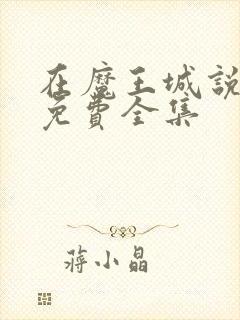 在魔王城說
免費全集
蔣小晶